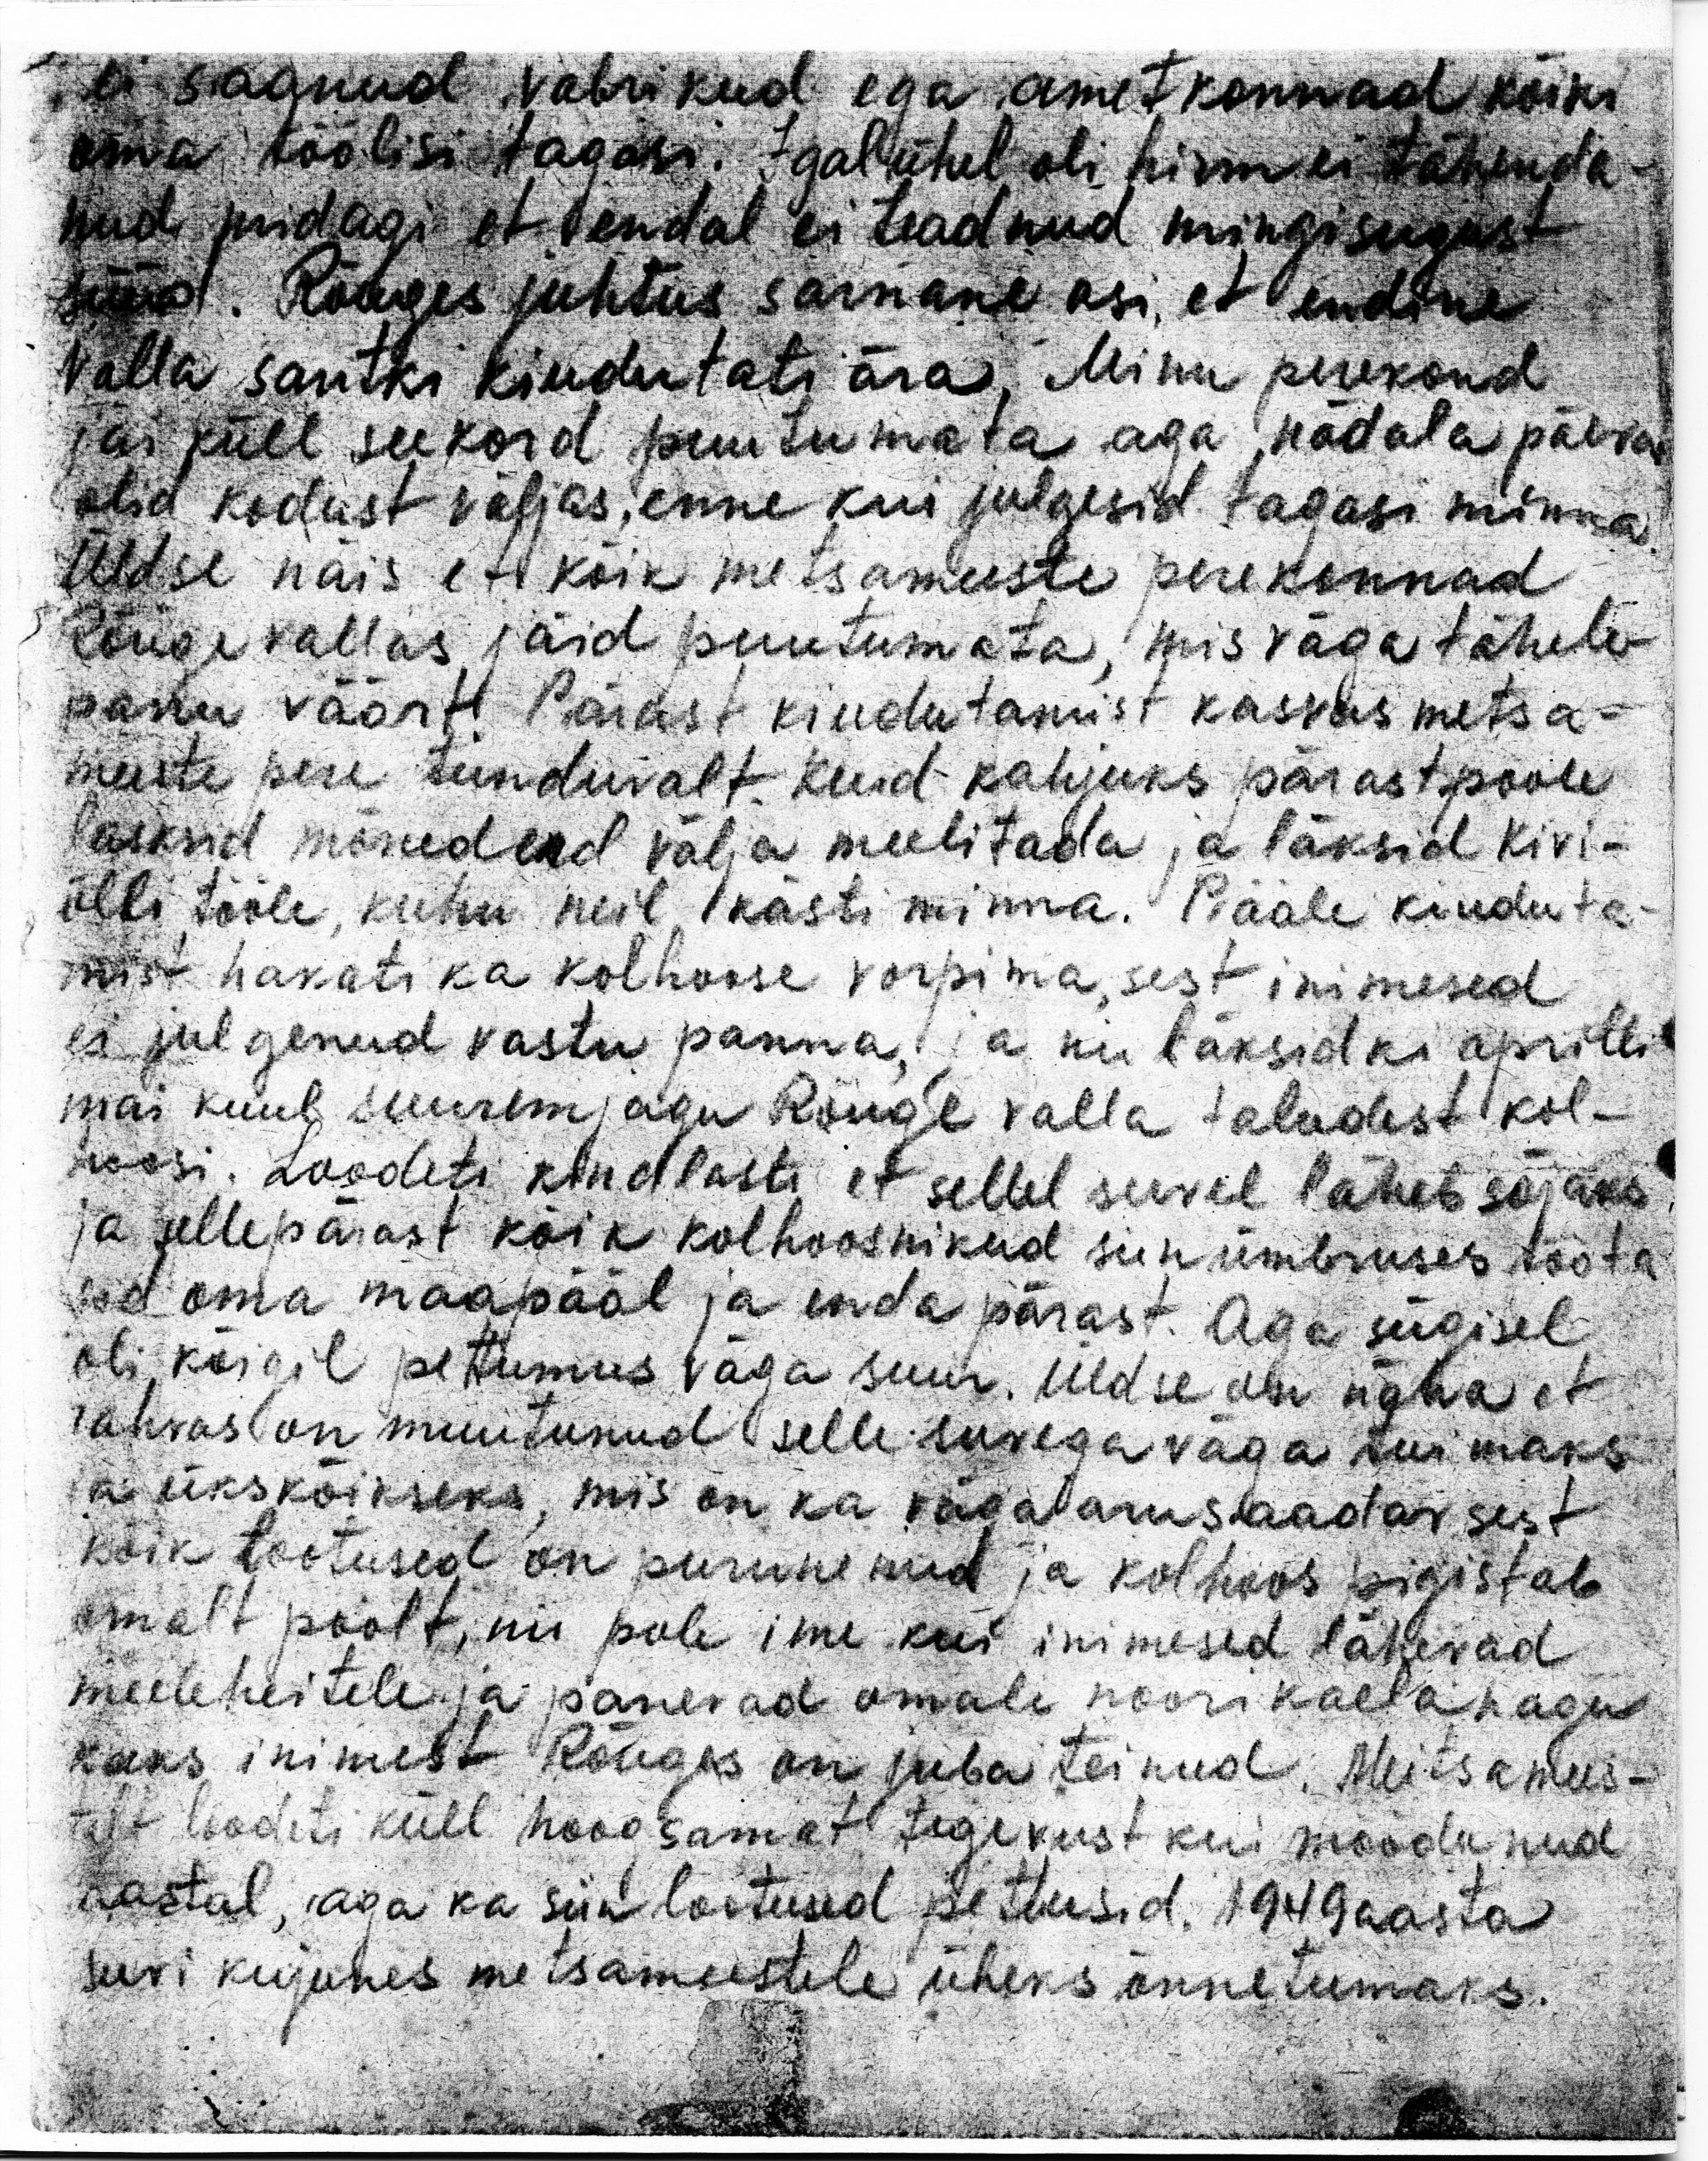 ei saanud vabrikud ega ametkonnad kõiki
oma töölisi tagasi. Igalühel oli hirm ei tähenda-
nud midagi et endal ei teadnud mingisugust
süüd. Rõuges juhtus sarnane asi, et endine
valla santki küüdutati ära, Minu perekond
jäi küll seekord puutumata aga nädala päevad
olid kodust väljas, enne kui julgesid tagasi minna.
Üldse näis et kõik metsameeste perekonnad
Rõuge vallas jäid puutumata, mis väga tähele-
panu väärt! Pärast küüdutamist kasvas metsa-
meeste pere tunduvalt. Kuid kahjuks pärastpoole
lasksid mõned end välja meelitada ja läksid Kivi-
õlli tööle, kuhu neil kästi minna. Pääle küüduta-
mist hakati ka kolhoose vorpima, sest inimesed
ei julgenud vastu panna, ja nii läksidki aprilli
mai kuul suurem jagu Rõuge valla taludest kol-
hoosi. Loodeti kindlasti et sellel suvel läheb sõjaks
ja sellepärast kõik kolhoosnikud siin ümbruses tööta
sid oma maapääl ja enda pärast. Aga sügisel
oli kõigil pettumus väga suur. Üldse on näha et
rahvas on muutunud selle suvega väga tuimaks
ja ükskõikseks, mis on ka väga arusaadav sest
kõik lootused on purunenud ja kolhoos pigistab
omalt poolt, nii pole ime kui inimesed lähevad
meeleheitele ja panevad omale nööri kaela nagu
kaks inimest Rõuges on juba teinud. Metsamees-
telt loodeti küll hoogsamat tegevust kui möödunud
aastal, aga ka siin lootused pettusid. 1949 aasta
suvi kujunes metsameestele üheks õnnetumaks.